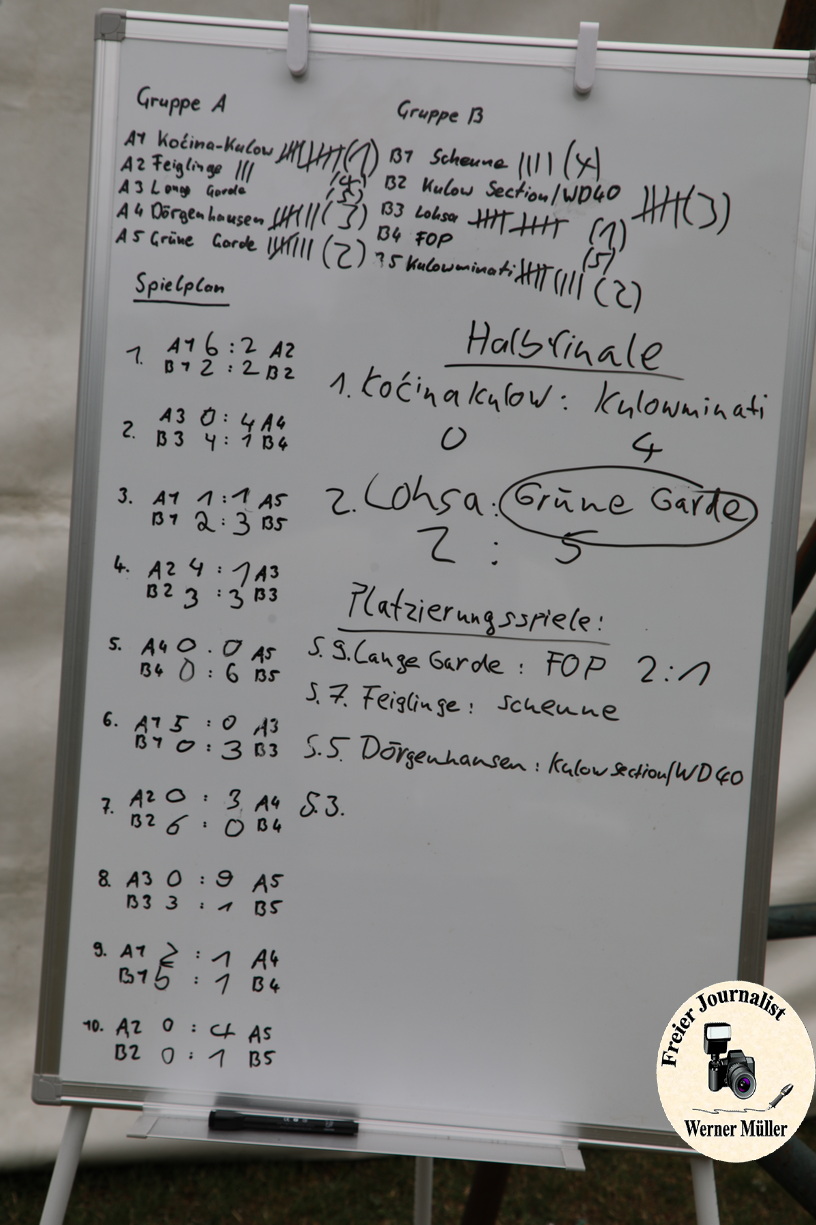 Gruppe A
A1 Koćina-Kulow (1)
A2 Feiglinge III (4)
A3 Lange Garde (5)
A4 Dörgenhausen (3)
A5 Grüne Garde (2)
Gruppe B
B1 Scheune IIII (4)
B2 Kulow Section/WD40 (3)
B3 Lohsa (1)
B4 FOP (5)
5 Kulowminati (2)
Spielplan
1. A1 6 : 2 A2
B1 2 : 2 B2
2. A3 0 : 4 A4
B3 4 : 1 B4
3. A1 1 : 1 A5
B1 2 : 3 B5
4. A2 4 : 1 A3
B2 3 : 3 B3
5. A4 0 . 0 A5
B4 0 : 6 B5
6. A1 5 : 0 A3
B1 0 : 3 B3
7. A2 0 : 3 A4
B2 6 : 0 B4
8. A3 0 : 9 A5
B3 3 : 1 B5
9. A1 2 : 1 A4
B1 5 : 1 B4
10. A2 0 : 4 A5
B2 0 : 1 B5
Halbfinale
1. Koćinakulow : Kulowminati
0 4
2. Lohsa : Grüne Garde
2 : 5
Platzierungsspiele:
S. 9. Lange Garde : FOP 2:1
S. 7. Feiglinge : Scheune
S. 5. Dörgenhausen : Kulow Section/WD40
S. 3.
Freier Journalist
Werner Müller